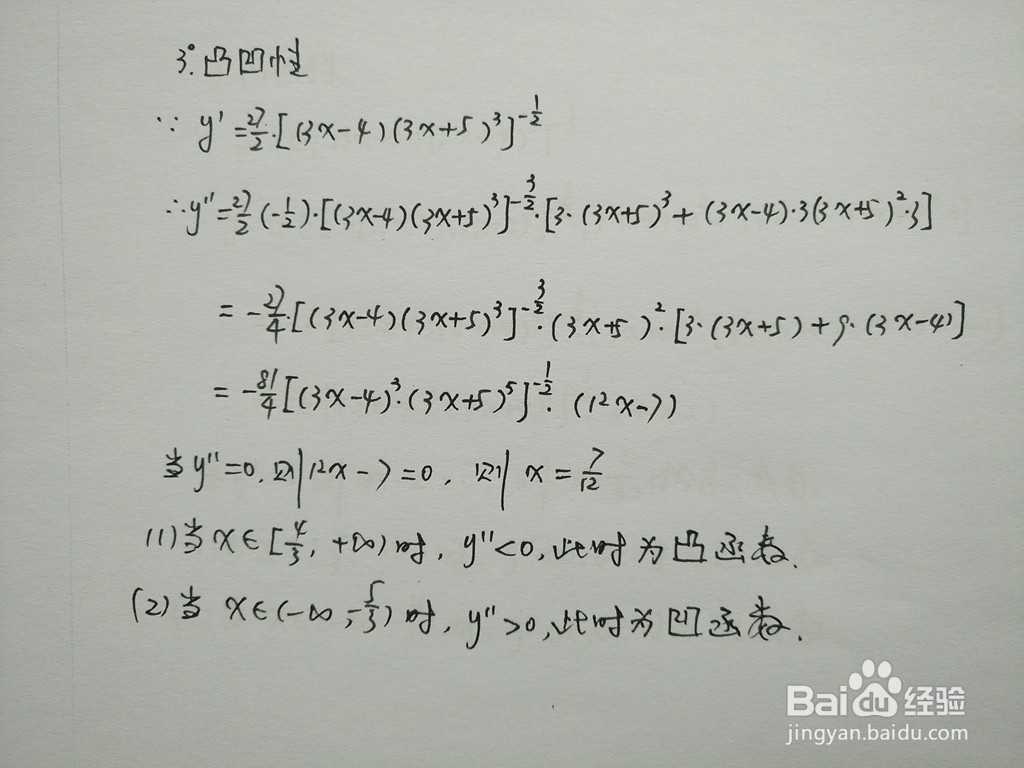 3°.凸凹性
∵ y' = 27/2·[(3x-4)(3x+5)³]^(-1/2)
∴y''=27/2(-1/2)·[(3x-4)(3x+5)³]^(-3/2)·[3·(3x+5)³+(3x-4)·3(3x+5)²·3]
= -27/4·[(3x-4)(3x+5)³]^(-3/2)·(3x+5)²·[3·(3x+5)+9·(3x-4)]
= -81/4[(3x-4)³·(3x+5)⁵]^(-1/2)·(12x-7)
当y''=0,则12x-7=0,则x=7/12
(1)当x∈[4/3,+∞)时,y''<0,此时为凸函数.
(2)当x∈(-∞,-5/3)时,y''>0,此时为凹函数.
Baidu经验
jingyan.baidu.com